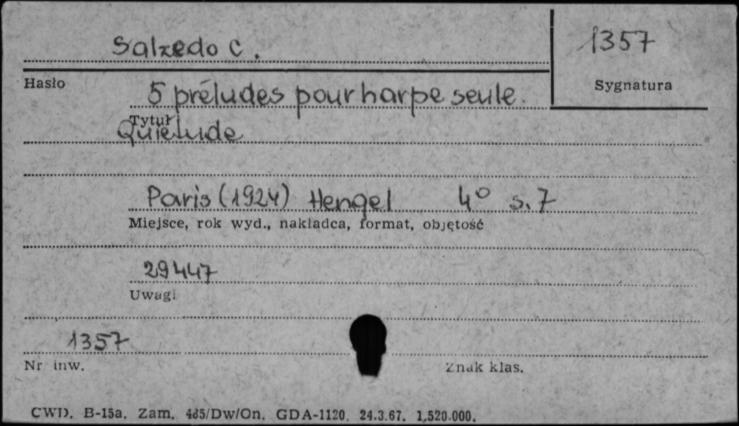 Salzedo C.
1357
Hasło
Sygnatura
5 préludes pour harpe seule.
Tytuł
Quiétude
Paris (1924) Hengel 4° s. 7
Miejsce, rok wyd., nakładca, format, objętość
29447
Uwagi
1357
Nr inw.
Znak klas.
CWD. B-15a. Zam. 485/Dw/On. GDA-1120. 24.3.67. 1,520.000.